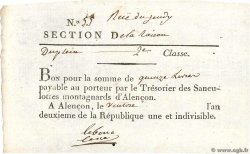 N.º 53 Rue du jeudy
SECTION De la raison
Duplein 2er Classe.
BON pour la somme de quinze livres
payable au porteur par le Trésorier des Sancu-
lottes montagnards d'Alençon.
A Alençon, le ventose l'an
deuxieme de la République une et indivisible.